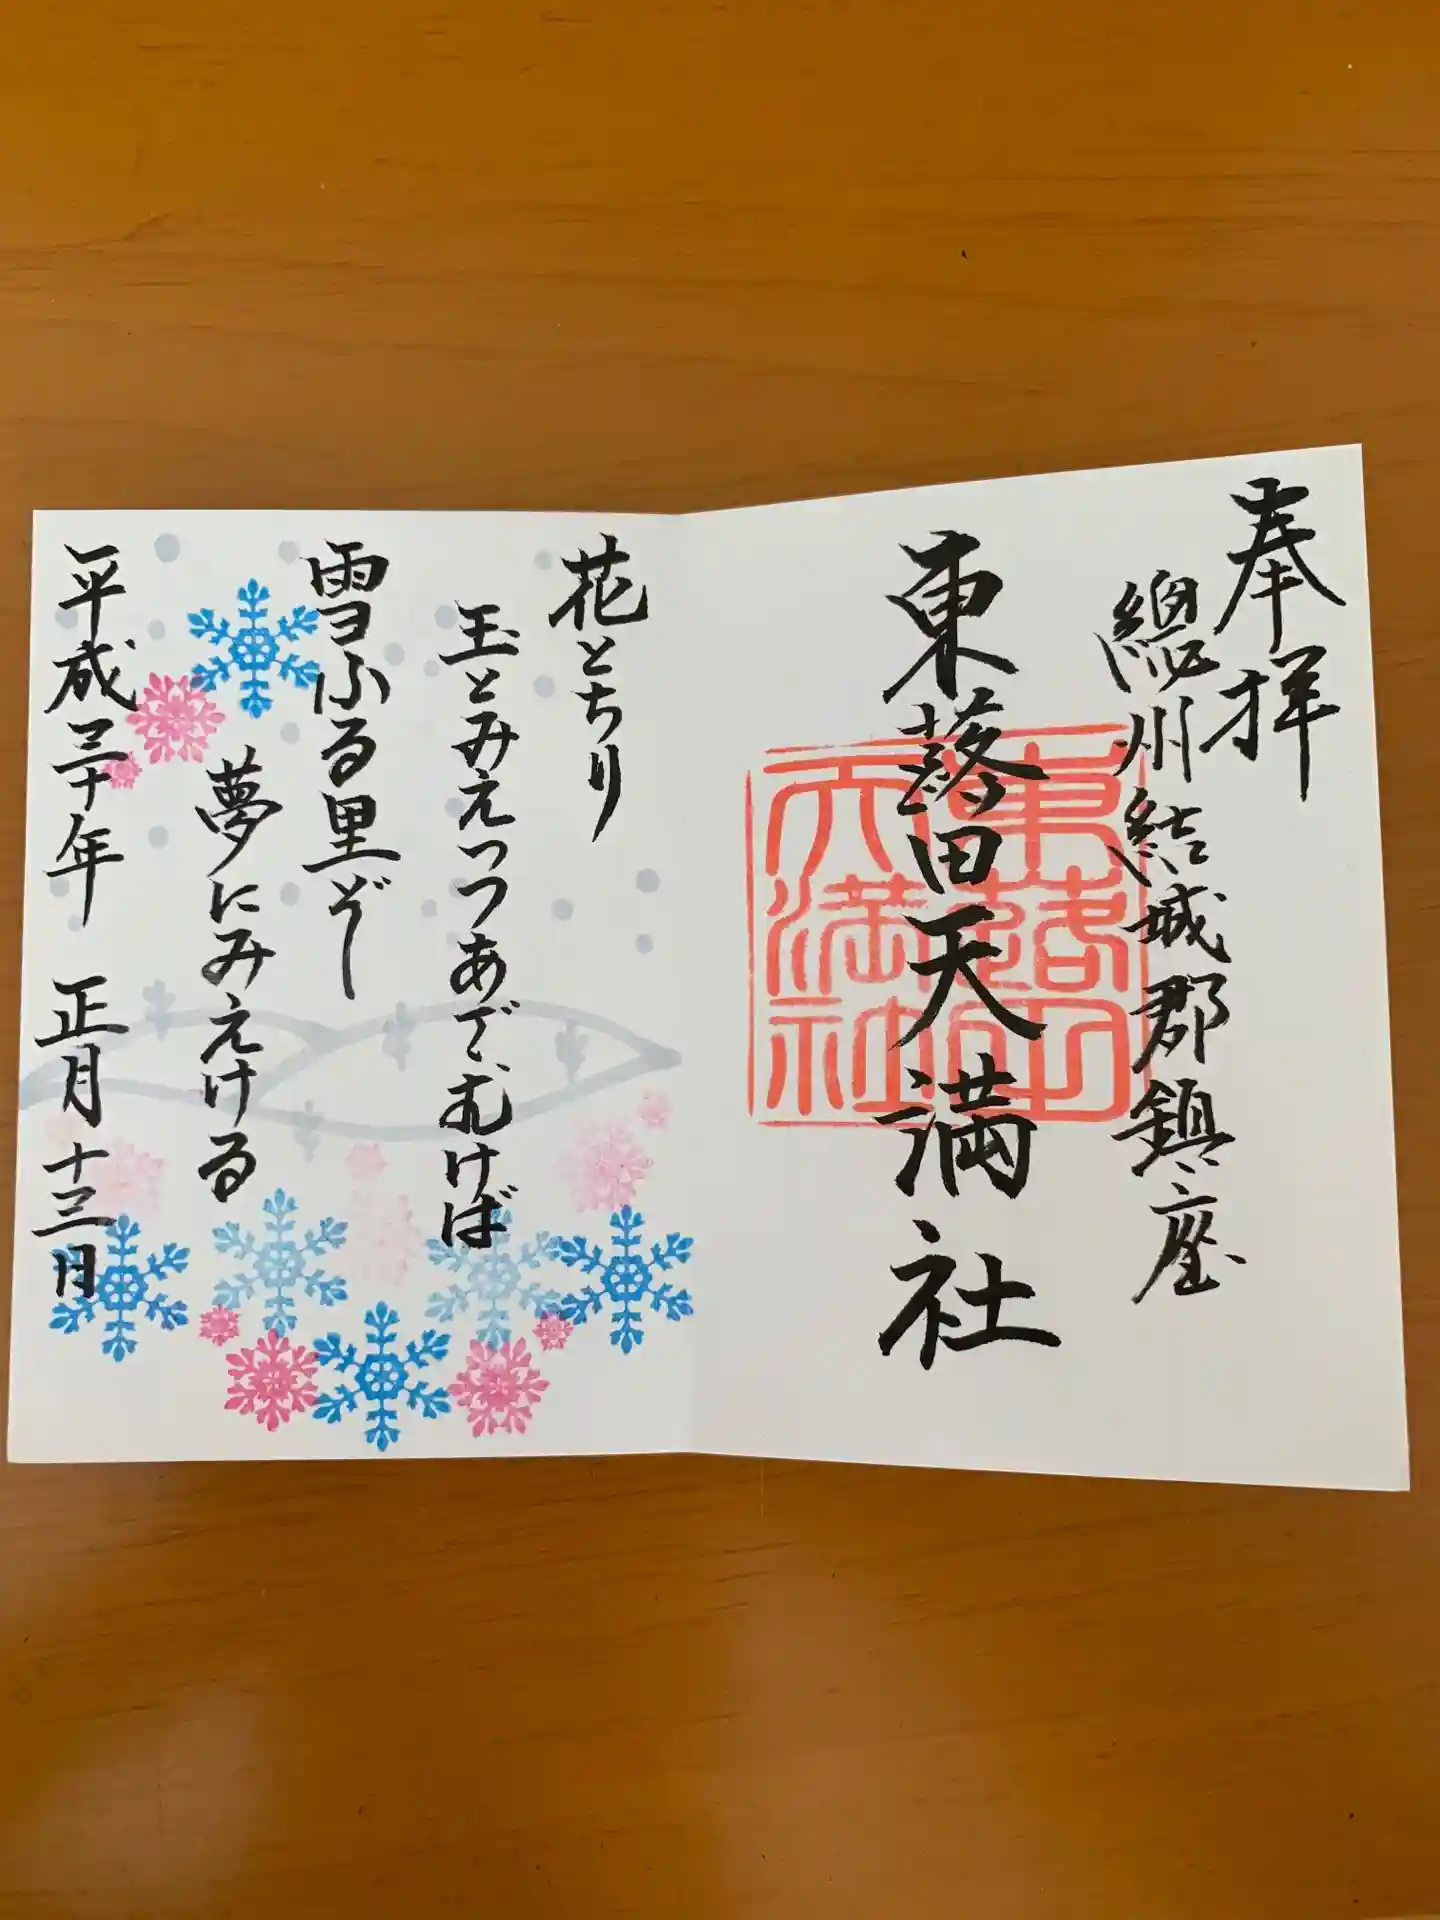 奉拝
總州結城郡鎮座
東蕗田天満社
東蕗田
天満社
花とちり
玉とみえつつあざむけば
雪ふる里ぞ
夢にみえける
平成三十年 正月十三日